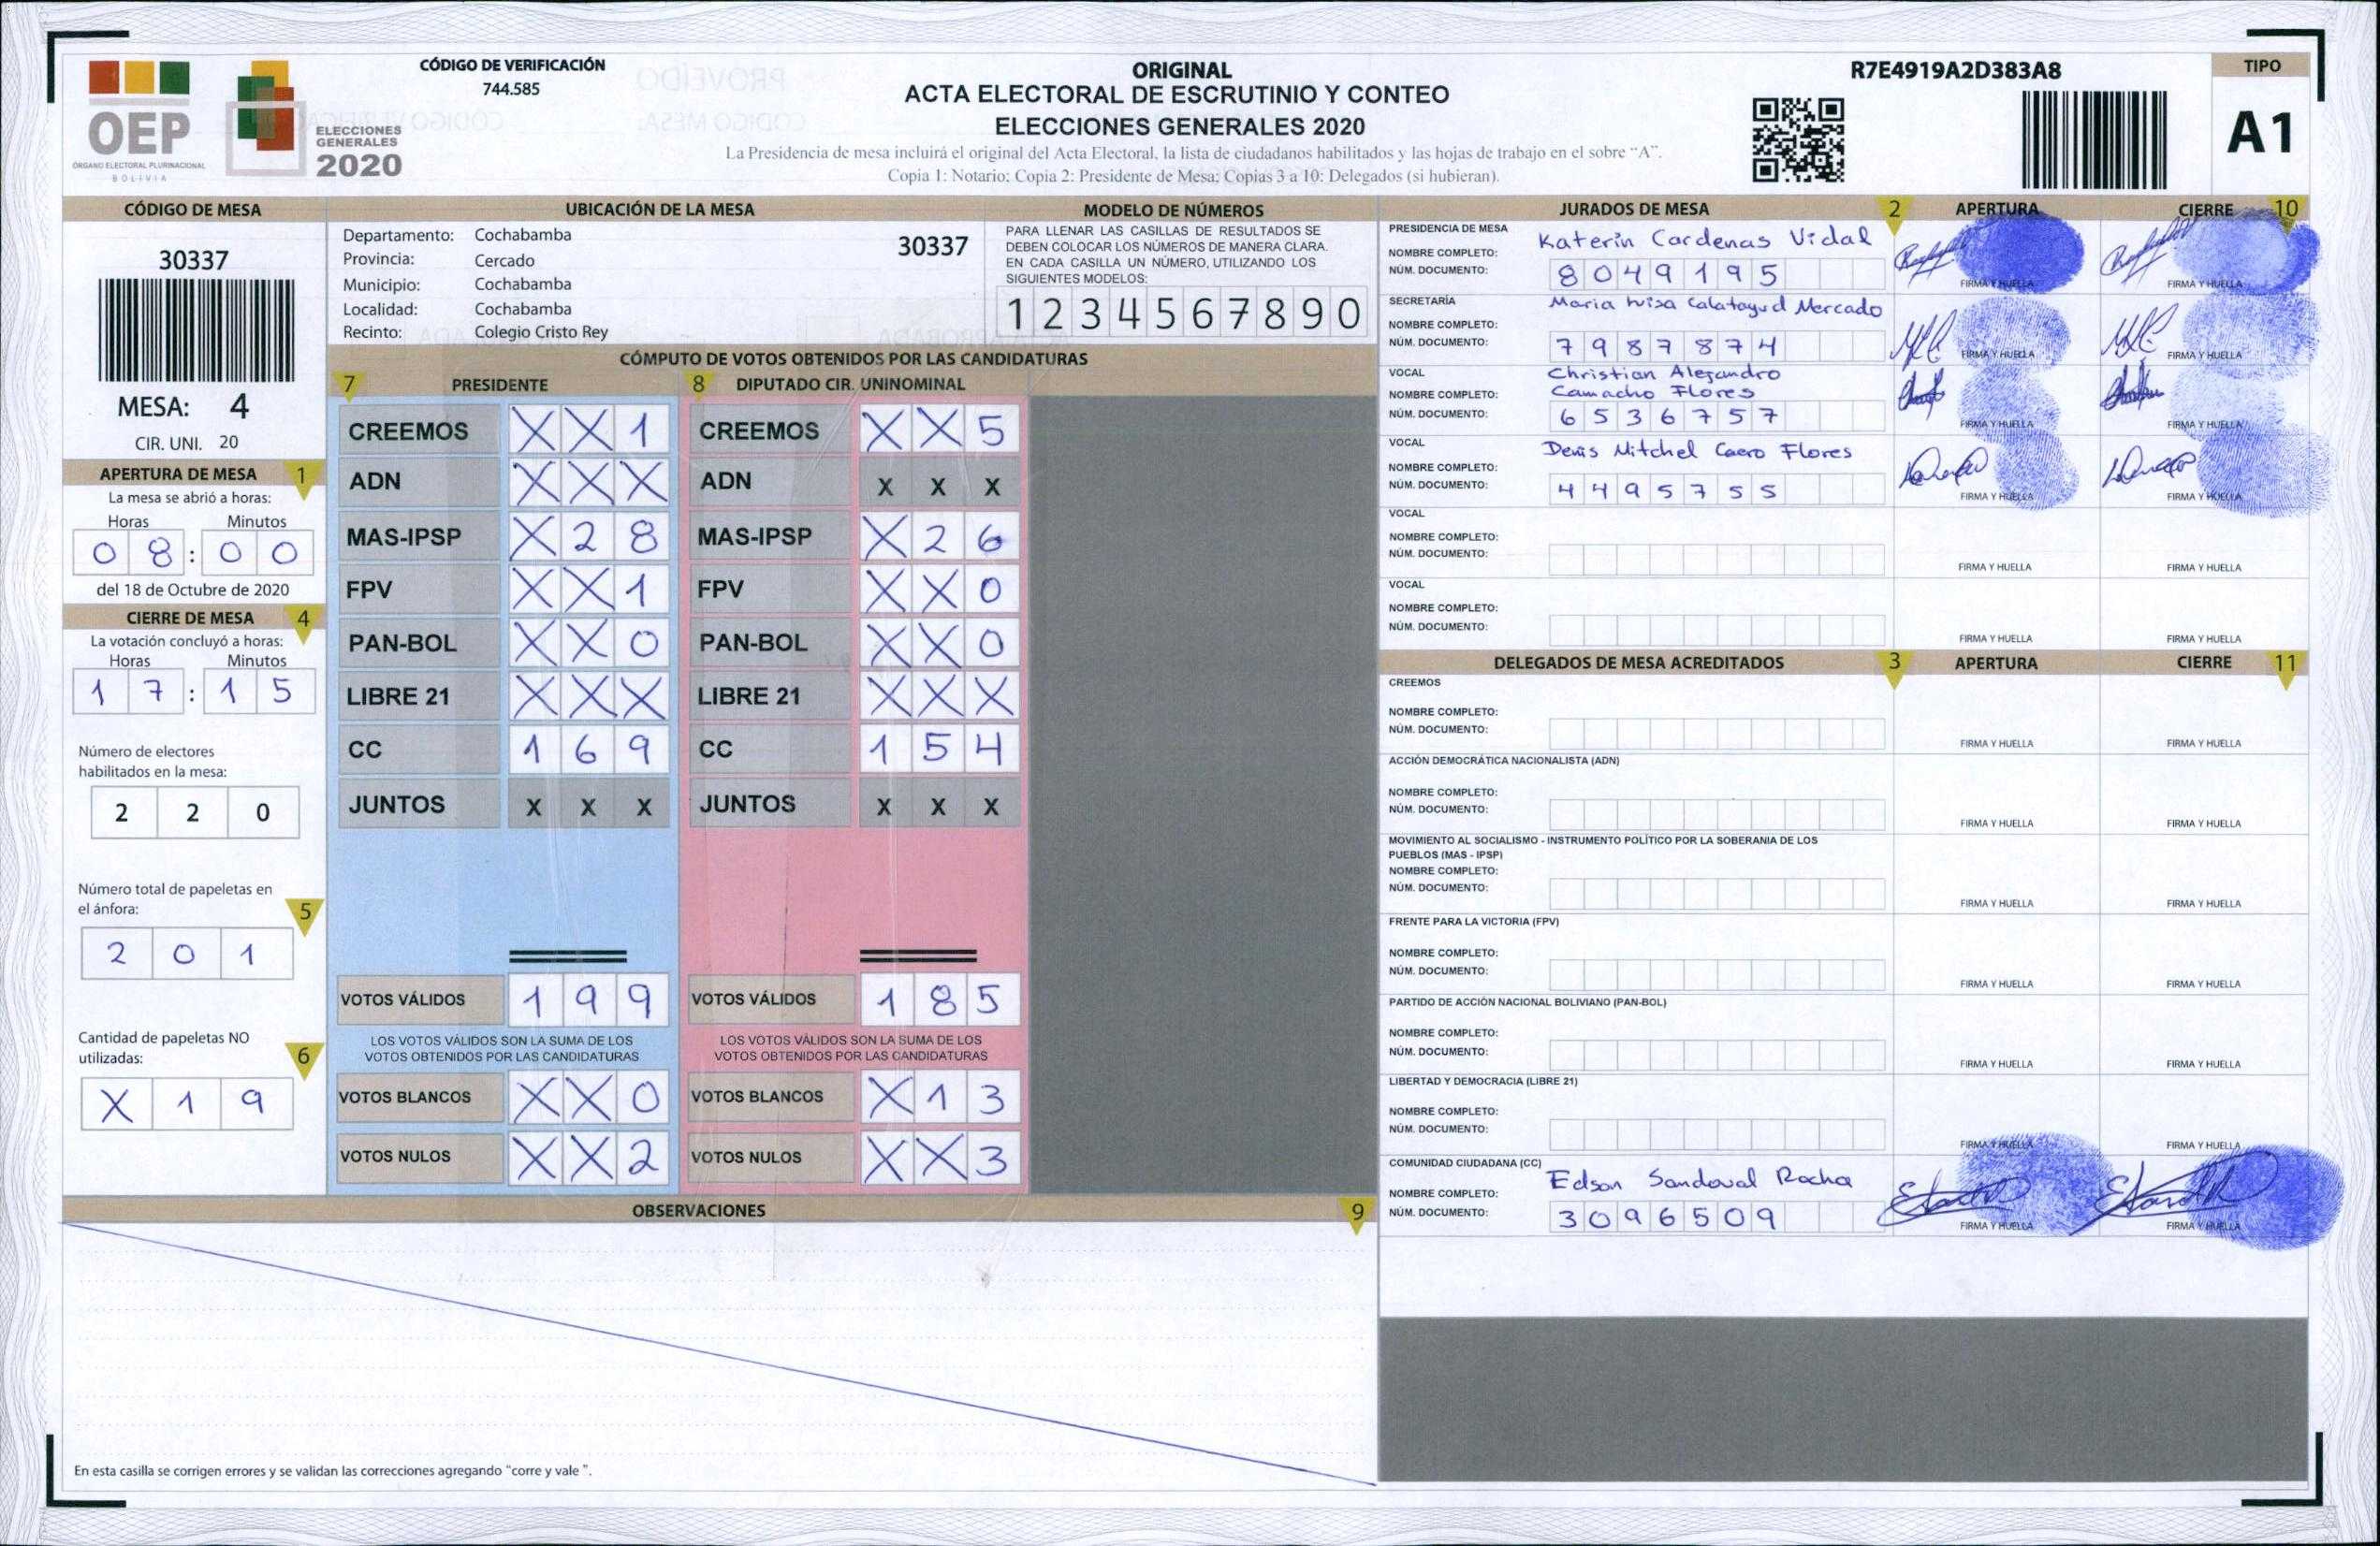 OEP
ÓRGANO ELECTORAL PLURINACIONAL
BOLIVIA
ELECCIONES
GENERALES
2020
CÓDIGO DE VERIFICACIÓN
744.585
ORIGINAL
ACTA ELECTORAL DE ESCRUTINIO Y CONTEO
ELECCIONES GENERALES 2020
La Presidencia de mesa incluirá el original del Acta Electoral, la lista de ciudadanos habilitados y las hojas de trabajo en el sobre "A".
Copia 1: Notario; Copia 2: Presidente de Mesa; Copias 3 a 10: Delegados (si hubieran).
R7E4919A2D383A8
TIPO
A1
CÓDIGO DE MESA
30337
MESA: 4
CIR. UNI. 20
APERTURA DE MESA 1
La mesa se abrió a horas:
Horas Minutos
0 8 : 0 0
del 18 de Octubre de 2020
CIERRE DE MESA 4
La votación concluyó a horas:
Horas Minutos
1 7 : 1 5
Número de electores
habilitados en la mesa:
2 2 0
Número total de papeletas en
el ánfora: 5
2 0 1
Cantidad de papeletas NO
utilizadas: 6
X 1 9
UBICACIÓN DE LA MESA
Departamento: Cochabamba 30337
Provincia: Cercado
Municipio: Cochabamba
Localidad: Cochabamba
Recinto: Colegio Cristo Rey
MODELO DE NÚMEROS
PARA LLENAR LAS CASILLAS DE RESULTADOS SE
DEBEN COLOCAR LOS NÚMEROS DE MANERA CLARA.
EN CADA CASILLA UN NÚMERO, UTILIZANDO LOS
SIGUIENTES MODELOS:
1 2 3 4 5 6 7 8 9 0
CÓMPUTO DE VOTOS OBTENIDOS POR LAS CANDIDATURAS
7 PRESIDENTE 8 DIPUTADO CIR. UNINOMINAL
CREEMOS X X 1 CREEMOS X X 5
ADN X X X ADN X X X
MAS-IPSP X 2 8 MAS-IPSP X 2 6
FPV X X 1 FPV X X 0
PAN-BOL X X 0 PAN-BOL X X 0
LIBRE 21 X X X LIBRE 21 X X X
CC 1 6 9 CC 1 5 4
JUNTOS X X X JUNTOS X X X
VOTOS VÁLIDOS 1 9 9 VOTOS VÁLIDOS 1 8 5
LOS VOTOS VÁLIDOS SON LA SUMA DE LOS LOS VOTOS VÁLIDOS SON LA SUMA DE LOS
VOTOS OBTENIDOS POR LAS CANDIDATURAS VOTOS OBTENIDOS POR LAS CANDIDATURAS
VOTOS BLANCOS X X 0 VOTOS BLANCOS X 1 3
VOTOS NULOS X X 2 VOTOS NULOS X X 3
OBSERVACIONES 9
En esta casilla se corrigen errores y se validan las correcciones agregando "corre y vale ".
JURADOS DE MESA 2 APERTURA CIERRE 10
PRESIDENCIA DE MESA
NOMBRE COMPLETO: Katerin Cardenas Vidal
NÚM. DOCUMENTO: 8 0 4 9 1 9 5
FIRMA Y HUELLA FIRMA Y HUELLA
SECRETARÍA
NOMBRE COMPLETO: Maria Luisa Calatayud Mercado
NÚM. DOCUMENTO: 7 9 8 7 8 7 4
FIRMA Y HUELLA FIRMA Y HUELLA
VOCAL
NOMBRE COMPLETO: Christian Alejandro
Camacho Flores
NÚM. DOCUMENTO: 6 5 3 6 7 5 7
FIRMA Y HUELLA FIRMA Y HUELLA
VOCAL
NOMBRE COMPLETO: Denis Mitchel Caero Flores
NÚM. DOCUMENTO: 4 4 9 5 7 5 5
FIRMA Y HUELLA FIRMA Y HUELLA
VOCAL
NOMBRE COMPLETO:
NÚM. DOCUMENTO:
FIRMA Y HUELLA FIRMA Y HUELLA
VOCAL
NOMBRE COMPLETO:
NÚM. DOCUMENTO:
FIRMA Y HUELLA FIRMA Y HUELLA
DELEGADOS DE MESA ACREDITADOS 3 APERTURA CIERRE 11
CREEMOS
NOMBRE COMPLETO:
NÚM. DOCUMENTO:
FIRMA Y HUELLA FIRMA Y HUELLA
ACCIÓN DEMOCRÁTICA NACIONALISTA (ADN)
NOMBRE COMPLETO:
NÚM. DOCUMENTO:
FIRMA Y HUELLA FIRMA Y HUELLA
MOVIMIENTO AL SOCIALISMO - INSTRUMENTO POLÍTICO POR LA SOBERANIA DE LOS
PUEBLOS (MAS - IPSP)
NOMBRE COMPLETO:
NÚM. DOCUMENTO:
FIRMA Y HUELLA FIRMA Y HUELLA
FRENTE PARA LA VICTORIA (FPV)
NOMBRE COMPLETO:
NÚM. DOCUMENTO:
FIRMA Y HUELLA FIRMA Y HUELLA
PARTIDO DE ACCIÓN NACIONAL BOLIVIANO (PAN-BOL)
NOMBRE COMPLETO:
NÚM. DOCUMENTO:
FIRMA Y HUELLA FIRMA Y HUELLA
LIBERTAD Y DEMOCRACIA (LIBRE 21)
NOMBRE COMPLETO:
NÚM. DOCUMENTO:
FIRMA Y HUELLA FIRMA Y HUELLA
COMUNIDAD CIUDADANA (CC)
NOMBRE COMPLETO: Edson Sandoval Rocha
NÚM. DOCUMENTO: 3 0 9 6 5 0 9
FIRMA Y HUELLA FIRMA Y HUELLA